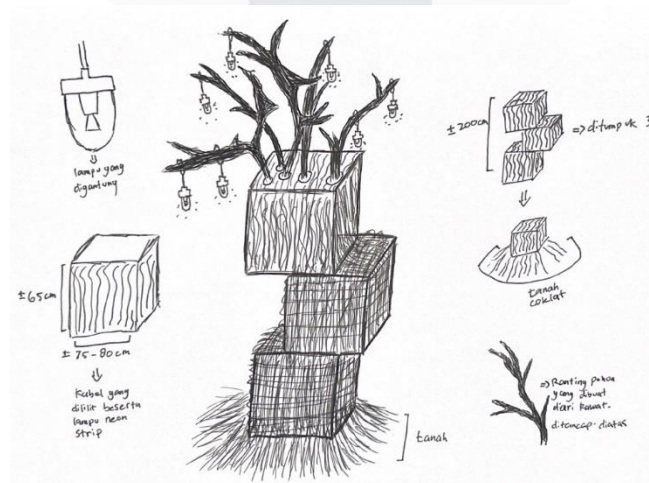 lampu yang
digantung
± 65cm
± 75-80cm
Kabel yang
dililit beserta
lampu neon
strip
tanah
± 200cm
=> ditumpuk 3
tanah
coklat
=> Ranting pohon
yang dibuat
dari kawat.
ditancap diatas